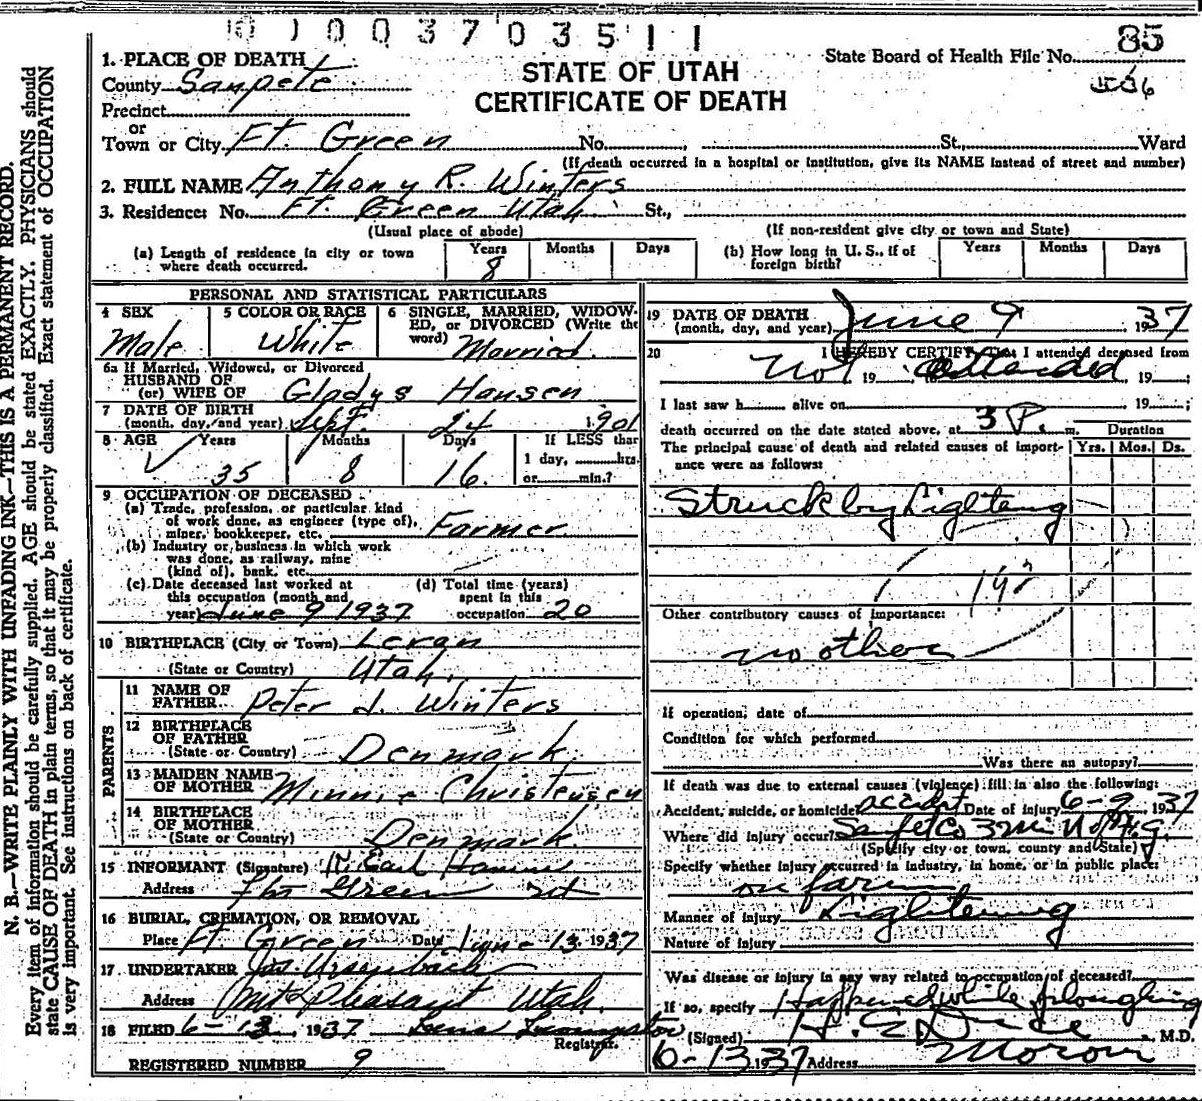 1003703511
85
State Board of Health File No.
STATE OF UTAH
CERTIFICATE OF DEATH
1. PLACE OF DEATH
County Sanpete
Precinct
or
Town or City Ft. Green No. , St., Ward
(If death occurred in a hospital or institution, give its NAME instead of street and number)
2. FULL NAME Anthony R. Winters
3. Residence: No. Ft. Green Utah. St.,
(Usual place of abode) (If non-resident give city or town and State)
(a) Length of residence in city or town where death occurred. Years 8 Months Days
(b) How long in U. S., if of foreign birth? Years Months Days
PERSONAL AND STATISTICAL PARTICULARS
4 SEX Male
5 COLOR OR RACE White
6 SINGLE, MARRIED, WIDOWED, or DIVORCED (Write the word) Married.
6a If Married, Widowed, or Divorced
HUSBAND OF
(or) WIFE OF Gladys Hansen
7 DATE OF BIRTH
(month, day, and year) Sept. 24 1901
8 AGE Years 35 Months 8 Days 16. If LESS than 1 day, hrs. or min.?
9 OCCUPATION OF DECEASED
(a) Trade, profession, or particular kind
of work done, as engineer (type of),
miner, bookkeeper, etc. Farmer.
(b) Industry or business in which work
was done, as railway, mine
(kind of), bank, etc.
(c) Date deceased last worked at
this occupation (month and
year) June 9 1937
(d) Total time (years)
spent in this
occupation 20
10 BIRTHPLACE (City or Town) Levan
(State or Country) Utah.
PARENTS
11 NAME OF
FATHER Peter J. Winters
12 BIRTHPLACE
OF FATHER
(State or Country) Denmark
13 MAIDEN NAME
OF MOTHER Minnie Christensen
14 BIRTHPLACE
OF MOTHER
(State or Country) Denmark.
15 INFORMANT (Signature) Earl
Address Green Ut
16 BURIAL, CREMATION, OR REMOVAL
Place Ft Green Date June 13 1937
17 UNDERTAKER Jas. Ursenbach
Address Mt Pleasant Utah.
18 FILED 6-13, 1937
Registrar.
REGISTERED NUMBER 9
19 DATE OF DEATH
(month, day, and year) June 9 1937
20 I HEREBY CERTIFY, That I attended deceased from
Not 19 attended 19 ;
I last saw h alive on 19 ;
death occurred on the date stated above, at 3 P. m. Duration
The principal cause of death and related causes of importance were as follows: Yrs. Mos. Ds.
Struck by Lighteng
Other contributory causes of importance:
no other
If operation, date of
Condition for which performed
Was there an autopsy?
If death was due to external causes (violence) fill in also the following:
Accident, suicide, or homicide accident Date of injury 6-9 1937
Where did injury occur?
(Specify city or town, county and State)
Specify whether injury occurred in industry, in home, or in public place:
on farm
Manner of injury Lightening
Nature of injury
Was disease or injury in any way related to occupation of deceased?
If so, specify Happened while ploughing
(Signed) M.D.
6-13 1937 Address Moroni
N. B.—WRITE PLAINLY WITH UNFADING INK—THIS IS A PERMANENT RECORD.
Every item of information should be carefully supplied. AGE should be stated EXACTLY. PHYSICIANS should
state CAUSE OF DEATH in plain terms, so that it may be properly classified. Exact statement of OCCUPATION
is very important. See instructions on back of certificate.